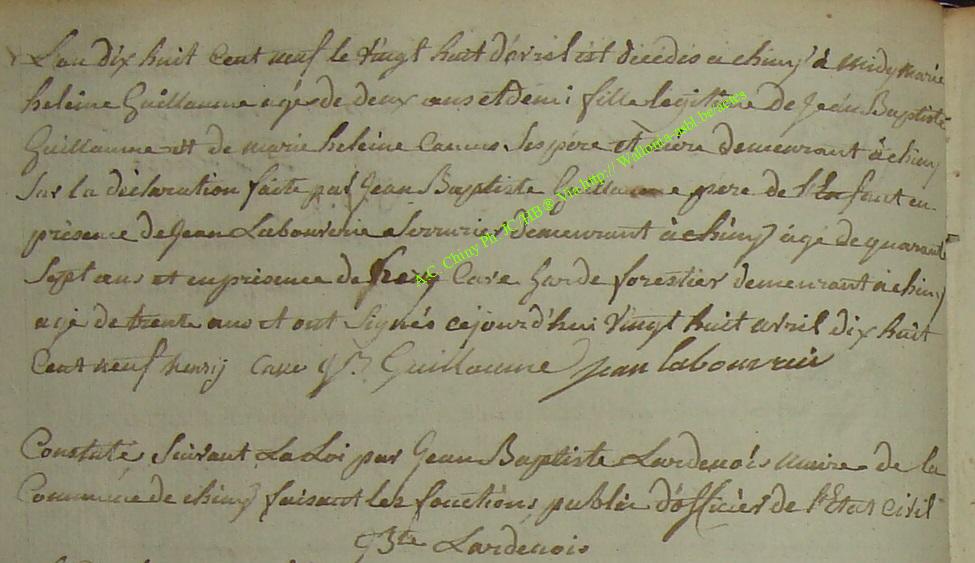 L'an dix huit Cent neuf le vingt huit d'avril est décédés à chiny à midy marie
heleine Guillaume agée de deux ans et demi fille legitime De Jean Baptiste
Guillaume et de marie heleine Ses père et mère demeurant à chiny
Sur la déclaration faite par Jean Baptiste Guillaume père de l'Enfant en
présence de Jean Labouverie Serrurier demeurant à chiny âgé de quarante
Sept ans et en présence de henry Care Garde forestier demeurant à chiny
agé de trente ans et ont Signés cejourd'hui Vingt huit avril dix huit
Cent neuf henrij Care Guillaume jean labouverie
Constaté Suivant La Loi par Jean Baptiste Lardenois maire de la
Commune de chiny faisant les fonctions public d'officier de l'Etat Civil
Bte Lardenois
A.C. Chiny Ph. JC HB ® Via http:// Wallonia-asbl.be/actes